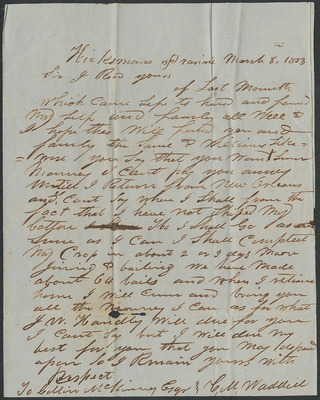 Hicksmans prairie March 8, 1853
Sir I Recd yours
of Last Mounth
which came safe to hand and found
My Self and family all Well &
I hope thes Will find you and
family the same &
Wise you Say that you Want Sum
Money I Cant pay you aney
untill I Return from New Orleans
and I Cant Say when I Shall from the
fact that I have not Shiped My
Cotton I Shall Go as
sune as I Can I Shall Compleat
My Crop in about 2 or 3 dys More
Gining & bailing we have Made
about 60 bails and When I returne
home I Will Cum and bring you
all the Money I Can as for What
J. W. Handley Will due for you
I Cant Say but I will due My
best for you that you May depend
upon I Remain yours with
Respect
To Collin McKinney Esqr G. M. Waddill